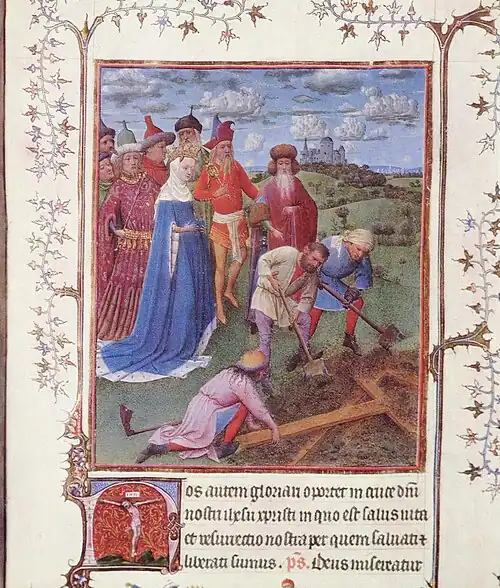 Nos autem gloriari oportet in cruce dni
nostri ihesu xpristi in quo est salus uita
et resurrectio nostra per quem saluati ⁊
liberati sumus. ps. Deus misereatur